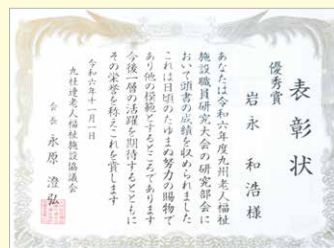 表彰状
優秀賞
岩永和浩様
あなたは令和六年度九州老人福祉
施設職員研究大会の研究部会に
おいて頭書の成績を収められました
これは日頃のたゆまぬ努力の賜物で
あり他の模範とするところであります
今後一層の活躍を期待するとともに
その栄誉を称えこれを賞します
令和六年十一月一日
九社連老人福祉施設協議会
会長 永原澄弘